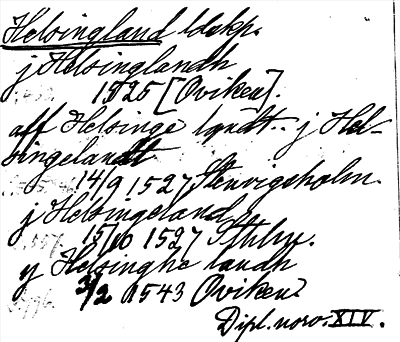 Helsingland ldskp.
j Helsinglandh
1525 [Oviken].
aff Helsinge landt.. j Hel-
singelandt
14/9 1527 Stenvigsholm.
j Helsingeland
15/10 1527 Sthlm.
y Helsinghe landh
3/2 1543 Oviken.
Dipl. norv. XIV.